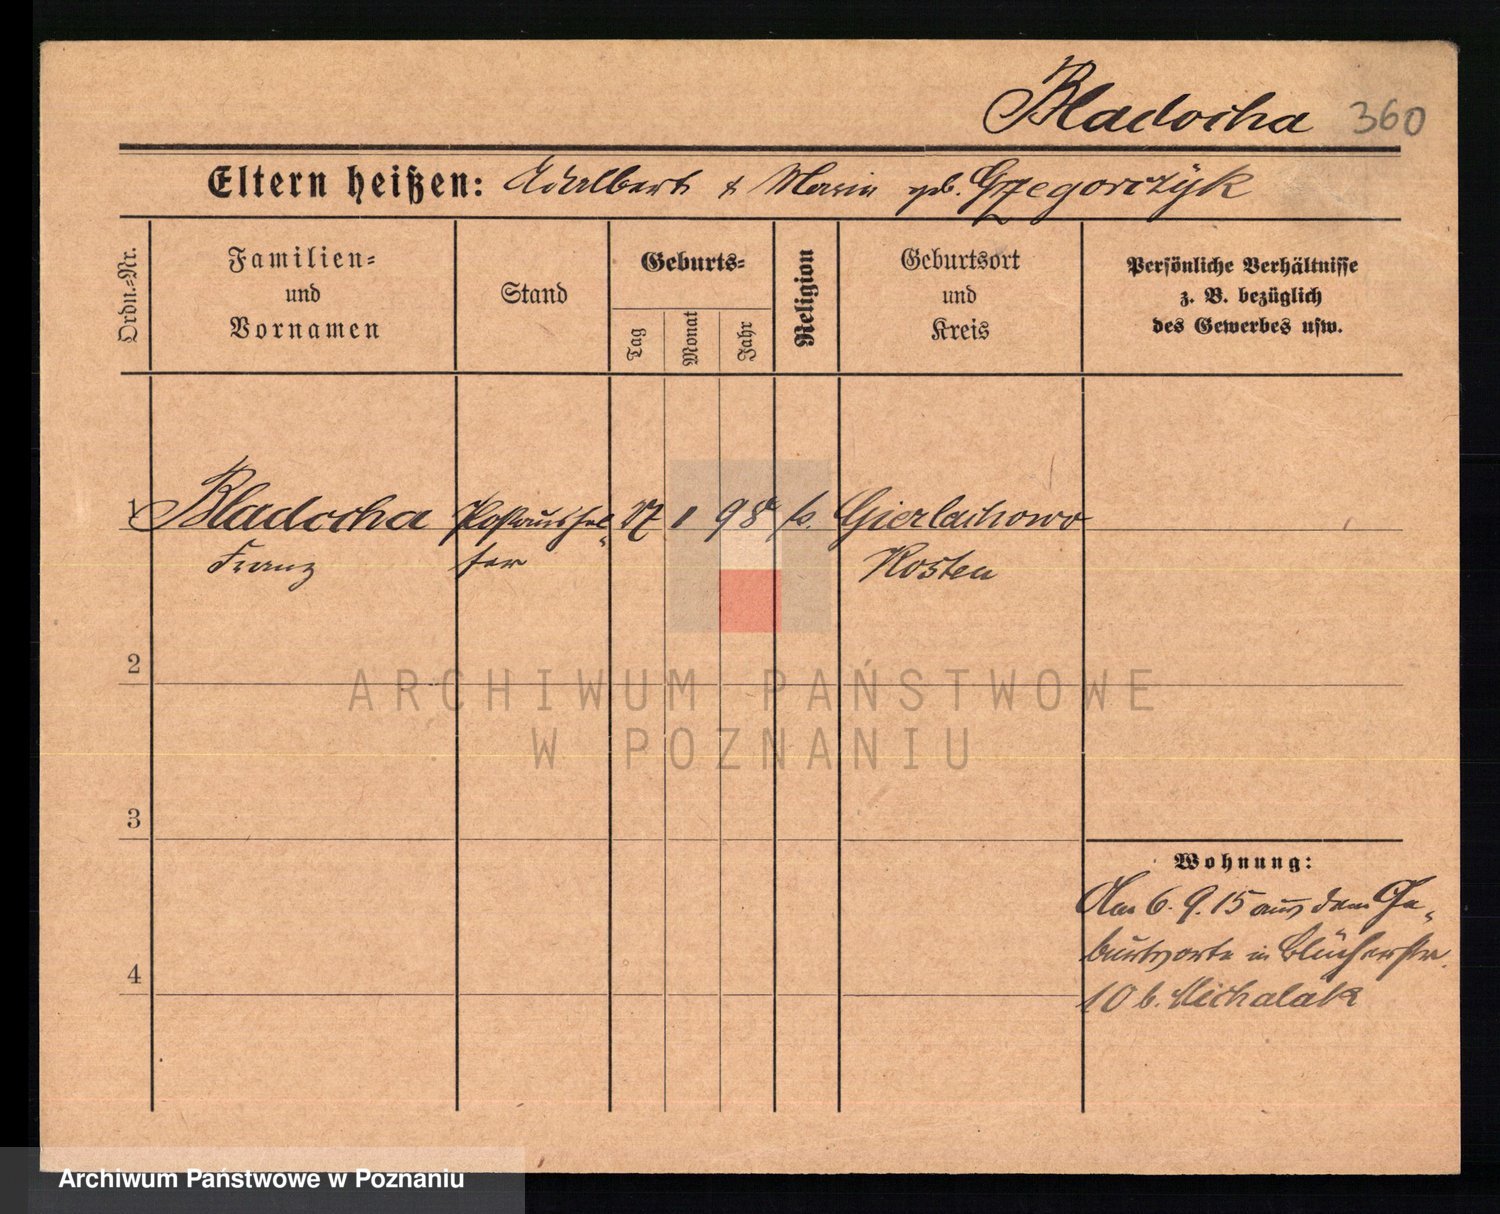 Bladocha 360
Eltern heißen: Adalbert & Marie geb. Grzegorczyk
Ordn.-Nr.
Familien-
und
Vornamen
Stand
Geburts-
Tag
Monat
Jahr
Religion
Geburtsort
und
Kreis
Persönliche Verhältnisse
z. B. bezüglich
des Gewerbes usw.
1 Bladocha Postaushel- 1 98 k. Gierlachowo
Franz fer Kosten
2
ARCHIWUM PAŃSTWOWE
W POZNANIU
3
Wohnung:
Am 6.9.15 aus dem Ge-
4 burtsorte in Blücherstr.
10 b. Michalak
Archiwum Państwowe w Poznaniu